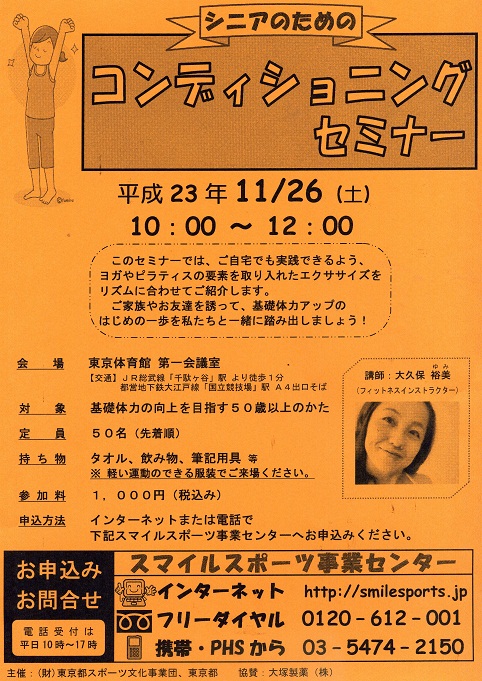 シニアのための
コンディショニング
セミナー
平成23年 11/26 (土)
10：00 ～ 12：00
このセミナーでは、ご自宅でも実践できるよう、
ヨガやピラティスの要素を取り入れたエクササイズを
リズムに合わせてご紹介します。
ご家族やお友達を誘って、基礎体力アップの
はじめの一歩を私たちと一緒に踏み出しましょう！
会場 東京体育館 第一会議室
【交通】ＪＲ総武線「千駄ヶ谷」駅 より徒歩１分
都営地下鉄大江戸線「国立競技場」駅 Ａ４出口そば
対象 基礎体力の向上を目指す５０歳以上のかた
定員 ５０名（先着順）
持ち物 タオル、飲み物、筆記用具 等
※ 軽い運動のできる服装でご来場ください。
参加料 １，０００円（税込み）
申込方法 インターネットまたは電話で
下記スマイルスポーツ事業センターへお申込みください。
ゆみ
講師：大久保 裕美
（フィットネスインストラクター）
お申込み
お問合せ
電話受付は
平日10時～17時
スマイルスポーツ事業センター
インターネット http://smilesports.jp
フリーダイヤル 0120-612-001
携帯・PHSから 03-5474-2150
主催：(財)東京都スポーツ文化事業団、東京都 協賛：大塚製薬（株）